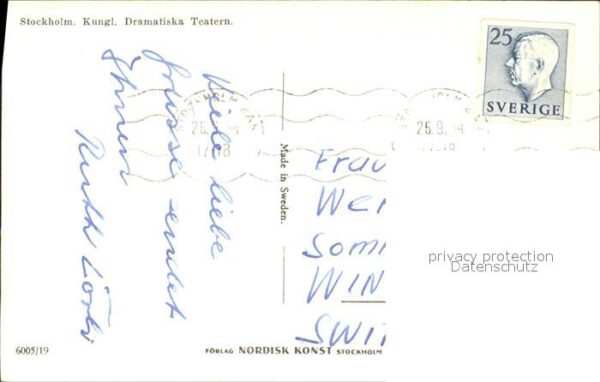 Stockholm. Kungl. Dramatiska Teatern.
Viele liebe
Grüsse sendet
Ihnen
Ruth
25
SVERIGE
25.9.54
17-18
Made in Sweden.
Frau
We
Som
WIN
SWI
privacy protection
Datenschutz
6005/19
FÖRLAG NORDISK KONST STOCKHOLM